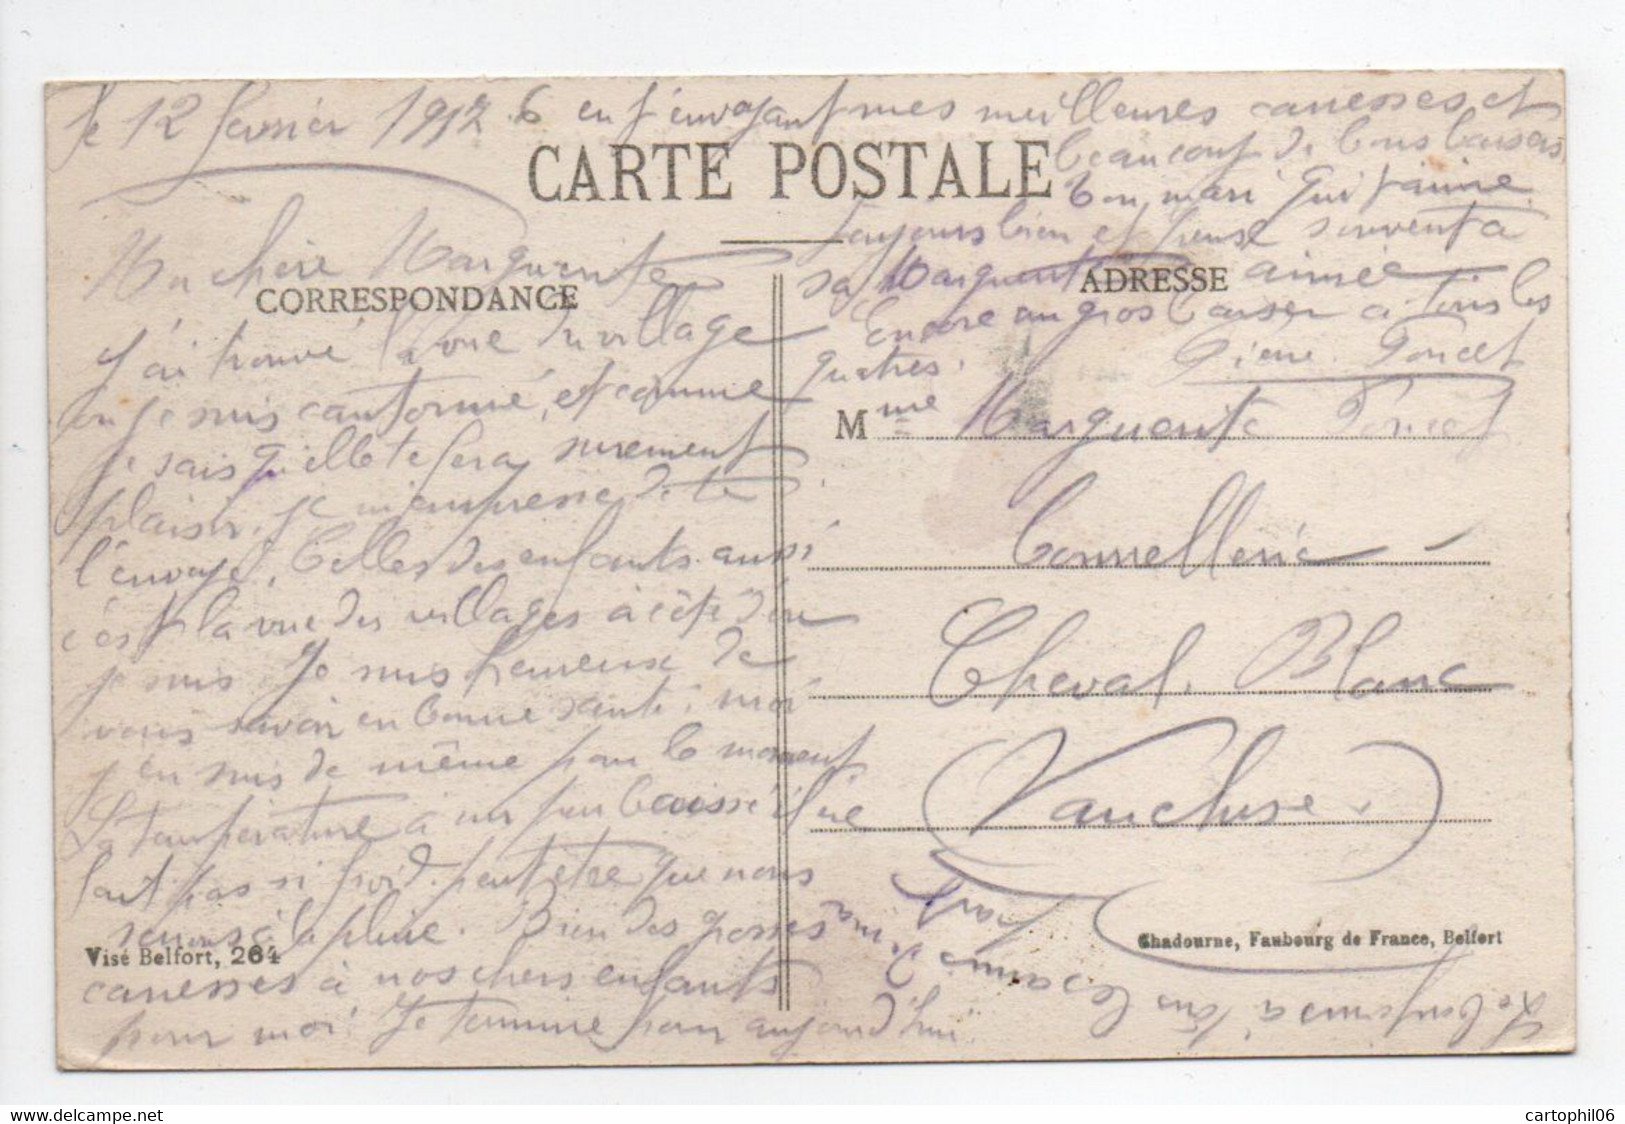 le 12 février 1917
CARTE POSTALE
CORRESPONDANCE
Ma chère Marguerite
J'ai trouvé la vue du village
ou je suis cantonné, et comme
je sais qu'elle te fera surement
plaisir, je m'empresse de te
l'envoyé. Celles des enfants aussi
c'est la vue des villages à côté d'ou
je suis. Je suis heureux de
vous savoir en bonne santé, moi
j'en suis de même pour le moment
La température a un peu baissé il ne
fait pas si froid. peut être que nous
serons à la pluie. Bien des grosses
caresses à nos chers enfants
pour moi. Je termine pour aujourd'hui
en t'envoyant mes meilleures caresses et
beaucoup de bons baisers
Ton mari qui t'aime
toujours bien et pense souvent a
sa Marguerite aimée
Encore un gros baiser a tous les
quatres. Pierre Poncet
ADRESSE
Mme Marguerite Poncet
Tonnellerie
Cheval Blanc
Vaucluse
le bonjour a tous les amis de ma part
Visé Belfort, 264
Chadourne, Faubourg de France, Belfort
cartophil06